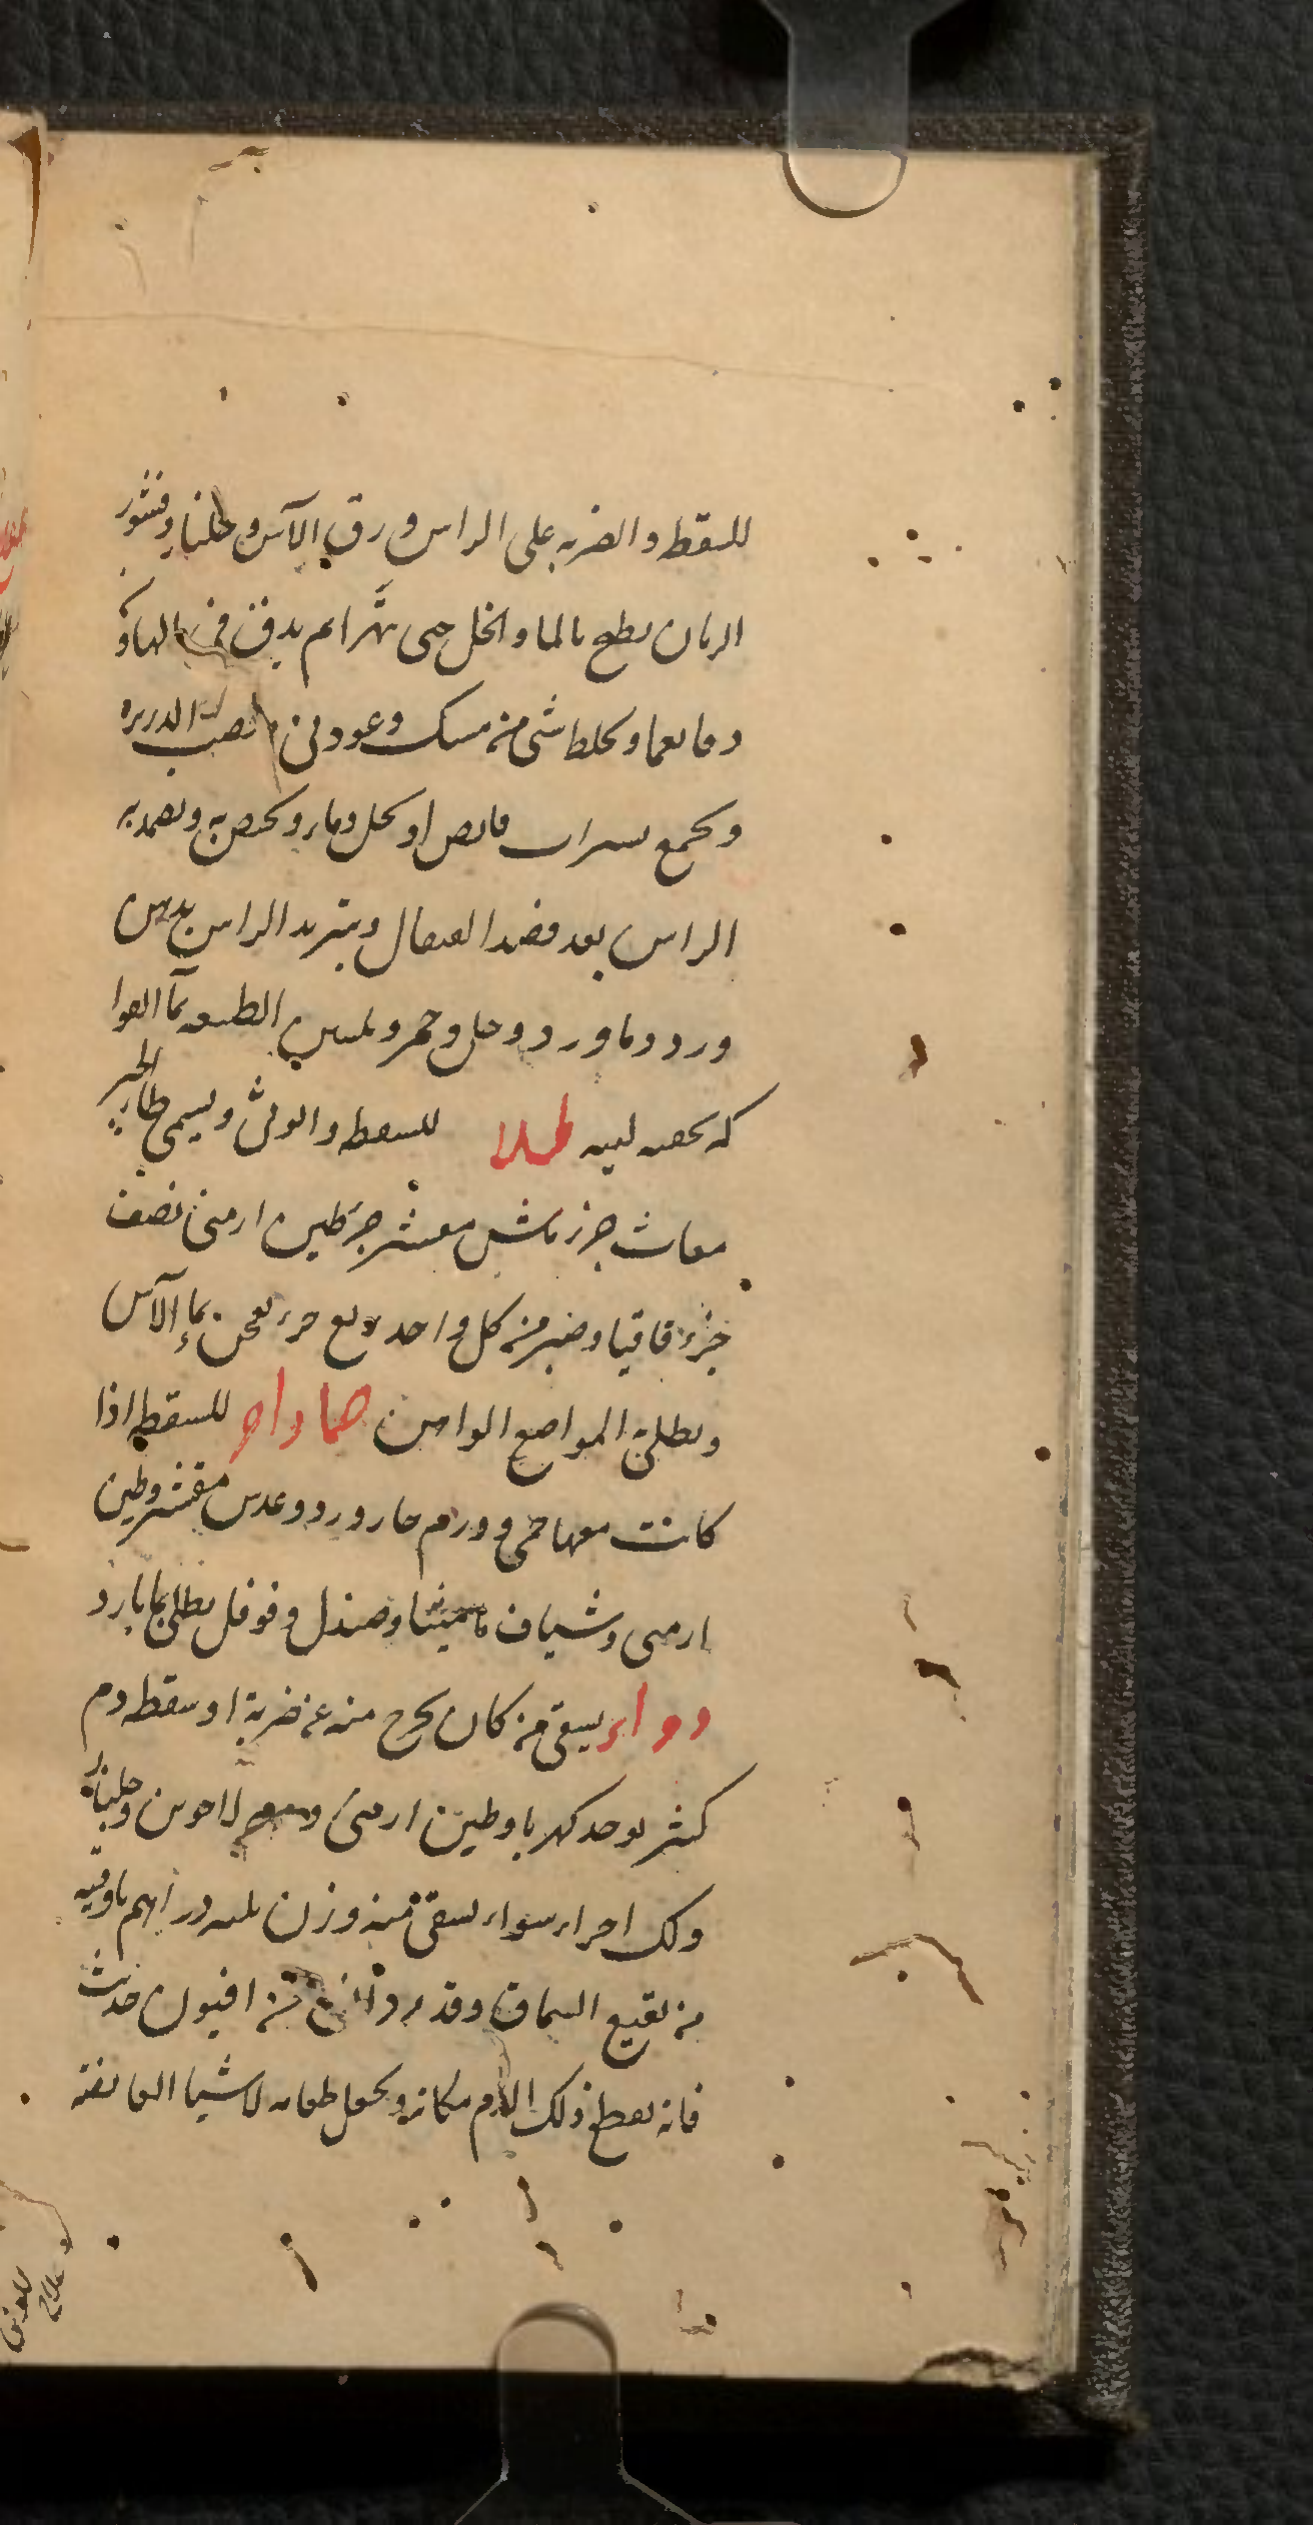 للسقط والضربه على الراس ورق الآس وجلنار وقشور
الرمان يطبخ بالما والخل حتى يتهرا ثم يدق في الهاون
دقا نعما ويخلط شى من مسك وعود ني وقصب الدريره
ويجمع بشراب قابض او بخل وماء ويخص به ويضمد به
الراس بعد فصد القيفال وتبريد الراس بدهن
ورد وماورد وخل وخمر وتليين الطبيعه بمآ الفوا
كه بحقنه لينه طلا للسقطه والوثى ويسمى طلا الجبر
مغاث جزء ماش مقشر جزء طين ارمنى نصف
جزء اقاقيا وصبر من كل واحد ربع جزء يعجن بماء الآس
ويطلى المواضع الواهن ضماد اخر للسقطه اذا
كانت معها حمى وورم حار ورد وعدس مقشر وطين
ارمنى وشياف ماميثا وصندل وفوفل يطلى بما بارد
دواء يسقى من كان يخرج منه عن ضربة او سقطه دم
كثير يوخد كهربا وطين ارمنى ودم لاخوين وجلنار
ولك اجزاء سواء يسقى منه وزن ثلثه دراهم باوقيه
من نقيع السماق وقدر دانق من افيون حديث
فانه يقطع ذلك الدم مكانه ويجعل طعامه لاشيا القابضه